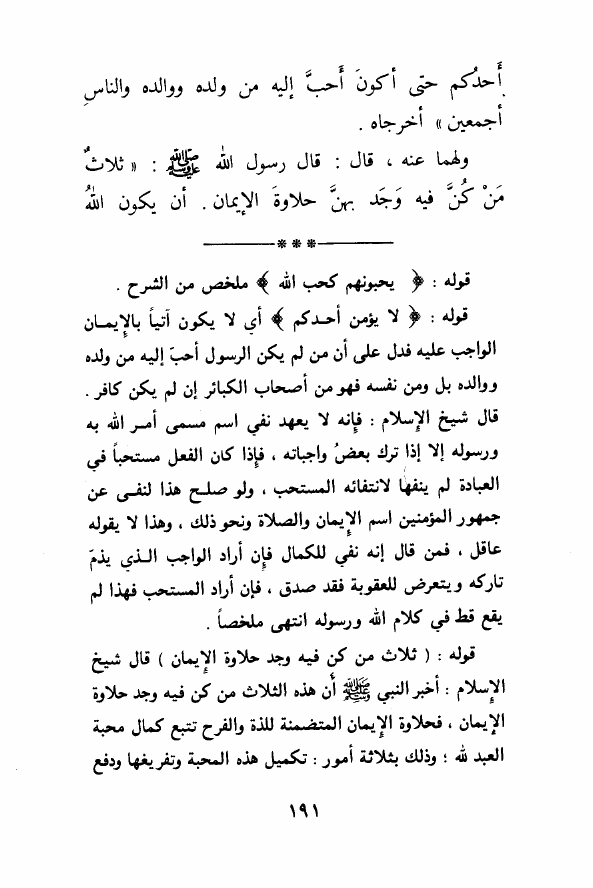 أَحدُكم حتى أكونَ أَحبَّ إليه من ولده ووالده والناسِ
أجمعين » أخرجاه .
ولهما عنه ، قال : قال رسول الله ﷺ : « ثلاثٌ
مَنْ كُنَّ فيه وَجَد بهنَّ حلاوةَ الإيمان . أن يكون اللهُ
***
قوله : ﴿ يحبونهم كحب الله ﴾ ملخص من الشرح .
قوله : ﴿ لا يؤمن أحدكم ﴾ أي لا يكون آتياً بالإيمان
الواجب عليه فدل على أن من لم يكن الرسول أحبّ إليه من ولده
ووالده بل ومن نفسه فهو من أصحاب الكبائر إن لم يكن كافر .
قال شيخ الإسلام : فإنه لا يعهد نفي اسم مسمى أمر الله به
ورسوله إلا إذا ترك بعضُ واجباته ، فإذا كان الفعل مستحباً في
العبادة لم ينفها لانتفائه المستحب ، ولو صلح هذا لنفى عن
جمهور المؤمنين اسم الإيمان والصلاة ونحو ذلك ، وهذا لا يقوله
عاقل ، فمن قال إنه نفي للكمال فإن أراد الواجب الذي يذمّ
تاركه ويتعرض للعقوبة فقد صدق ، فإن أراد المستحب فهذا لم
يقع قط في كلام الله ورسوله انتهى ملخصاً .
قوله : ( ثلاث من كن فيه وجد حلاوة الإيمان ) قال شيخ
الإسلام : أخبر النبي ﷺ أن هذه الثلاث من كن فيه وجد حلاوة
الإيمان ، فحلاوة الإيمان المتضمنة للذة والفرح تتبع كمال محبة
العبد لله ؛ وذلك بثلاثة أمور : تكميل هذه المحبة وتفريغها ودفع
١٩١